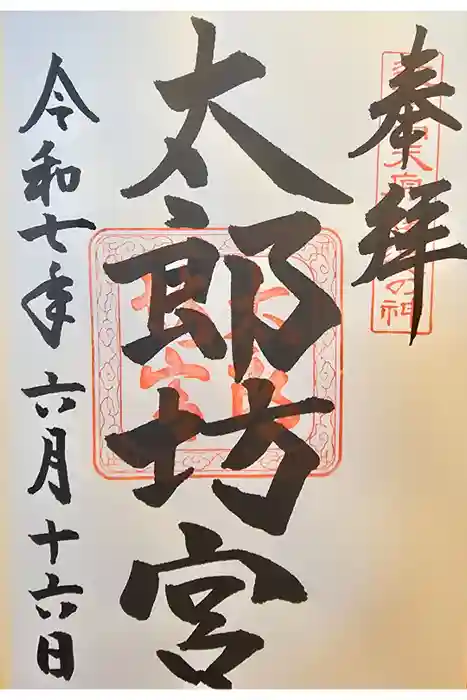 奉拝
太郎坊宮
令和七年六月十六日